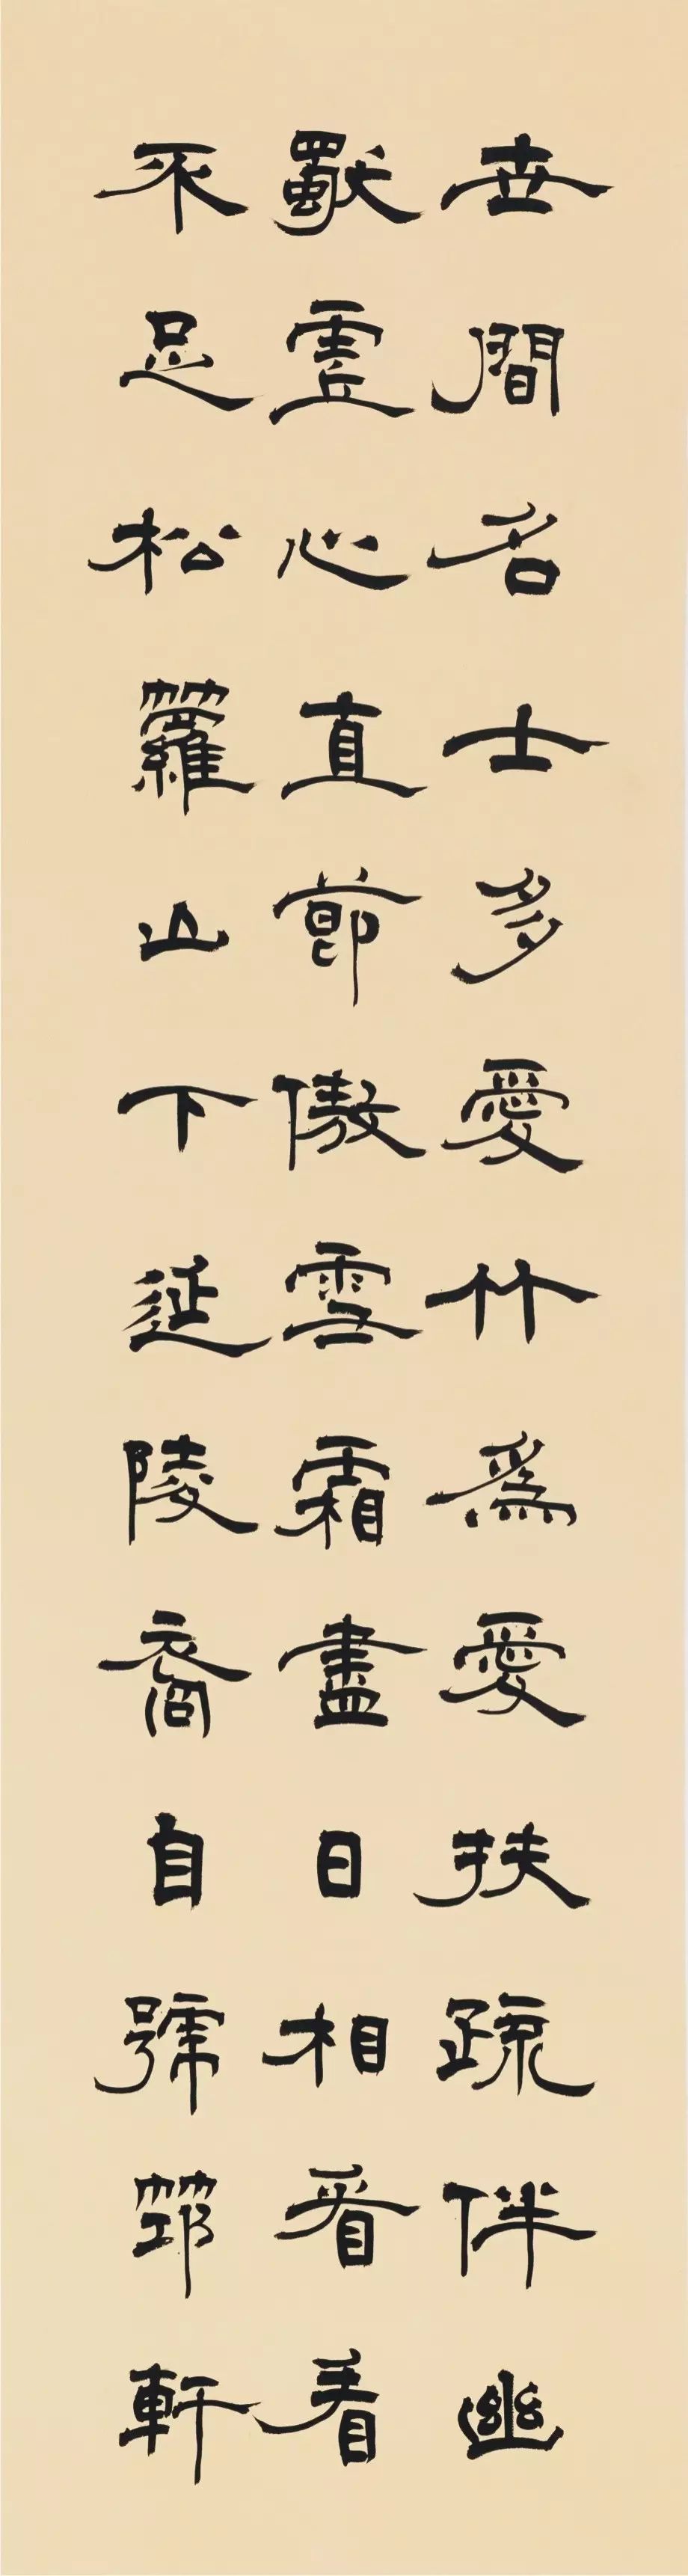 世間名士多愛竹爲愛扶疏伴幽
獨虛心直節傲雪霜盡日相看看
不足松蘿山下延陵裔自號筇軒